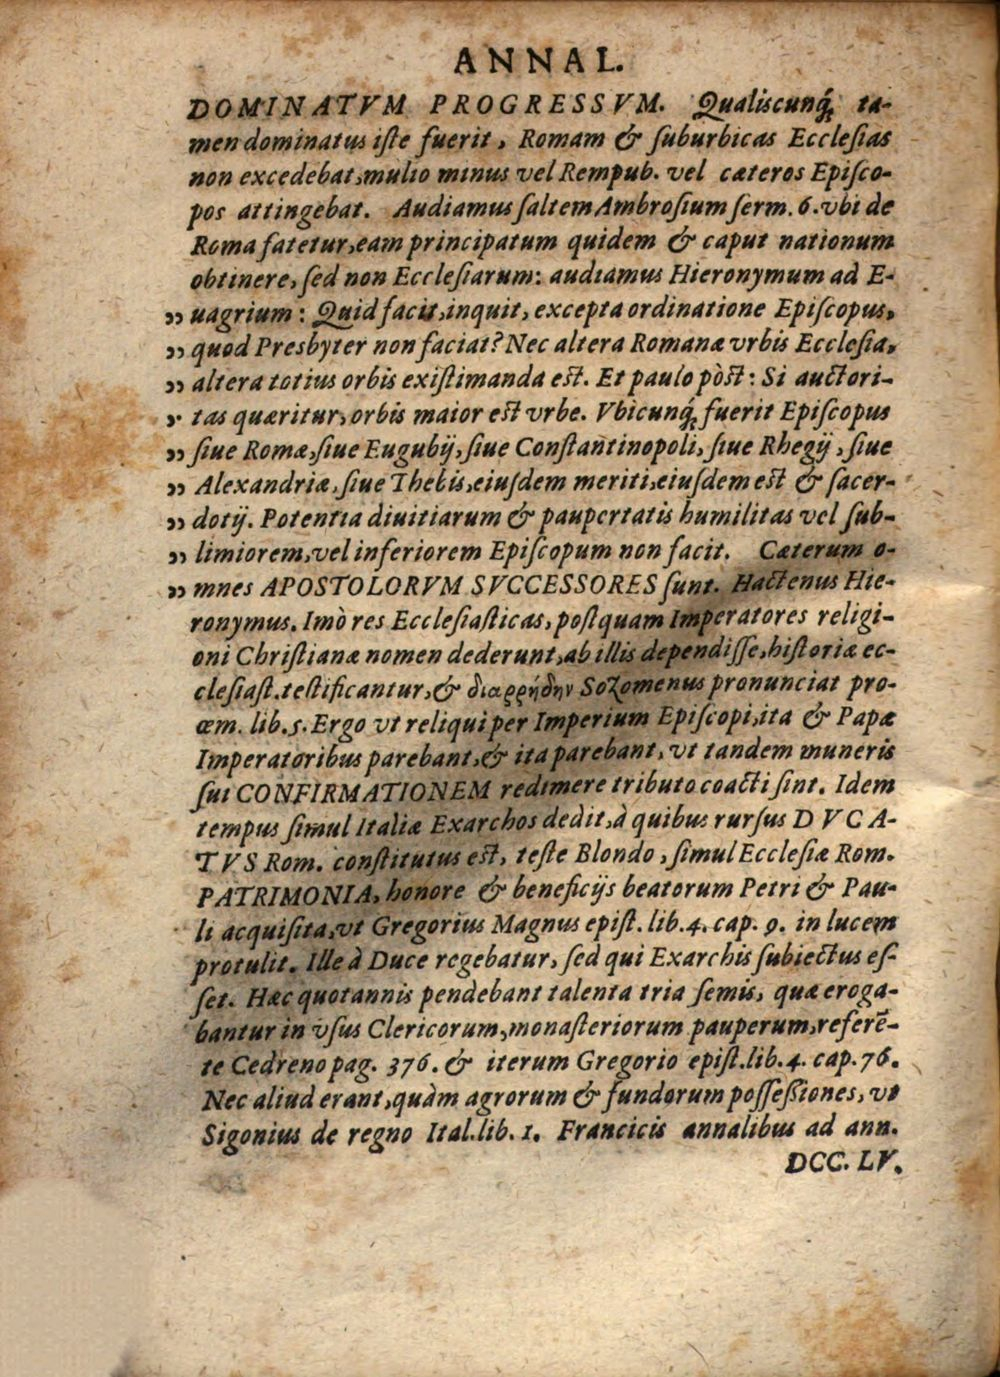 ANNAL.
DOMINATVM PROGRESSVM. Qualiscunq́; ta-
men dominatus iſte fuerit, Romam & ſuburbicas Eccleſias
non excedebat, multo minus vel Rempub. vel cæteros Epiſco-
pos attingebat. Audiamus ſaltem Ambroſium ſerm. 6. vbi de
Roma fatetur, eam principatum quidem & caput nationum
obtinere, ſed non Eccleſiarum: audiamus Hieronymum ad E-
„ uagrium: Quid facit, inquit, excepta ordinatione Epiſcopus,
„ quod Presbyter non faciat? Nec altera Romanæ vrbis Eccleſia,
„ altera totius orbis exiſtimanda eſt. Et paulo pòſt: Si auctori-
„ tas quæritur, orbis maior eſt vrbe. Vbicunq́; fuerit Epiſcopus
„ ſiue Romæ, ſiue Eugubij, ſiue Conſtantinopoli, ſiue Rhegij, ſiue
„ Alexandriæ, ſiue Thebis, eiuſdem meriti, eiuſdem eſt & ſacer-
„ dotij. Potentia diuitiarum & paupertatis humilitas vel ſub-
„ limiorem, vel inferiorem Epiſcopum non facit. Cæterum o-
„ mnes APOSTOLORVM SVCCESSORES ſunt. Hactenus Hie-
ronymus. Imò res Eccleſiaſticas, poſtquam Imperatores religi-
oni Chriſtianæ nomen dederunt, ab illis dependiſſe, hiſtoriæ ec-
cleſiaſt. teſtificantur, & διαῤῥήδην Sozomenus pronunciat pro-
œm. lib. 5. Ergo vt reliqui per Imperium Epiſcopi, ita & Papæ
Imperatoribus parebant, & ita parebant, vt tandem muneris
ſui CONFIRMATIONEM redimere tributo coacti ſint. Idem
tempus ſimul Italiæ Exarchos dedit, à quibus rurſus DVCA-
TVS Rom. conſtitutus eſt, teſte Blondo, ſimul Eccleſiæ Rom.
PATRIMONIA, honore & beneficijs beatorum Petri & Pau-
li acquiſita, vt Gregorius Magnus epiſt. lib. 4. cap. 9. in lucem
protulit. Ille à Duce regebatur, ſed qui Exarchis ſubiectus eſ-
ſet. Hæc quotannis pendebant talenta tria ſemis, quæ eroga-
bantur in vſus Clericorum, monaſteriorum pauperum, referē-
te Cedreno pag. 376. & iterum Gregorio epiſt. lib. 4. cap. 76.
Nec aliud erant, quàm agrorum & fundorum poſſeſſiones, vt
Sigonius de regno Ital. lib. 1. Francicis annalibus ad ann.
DCC. LV.